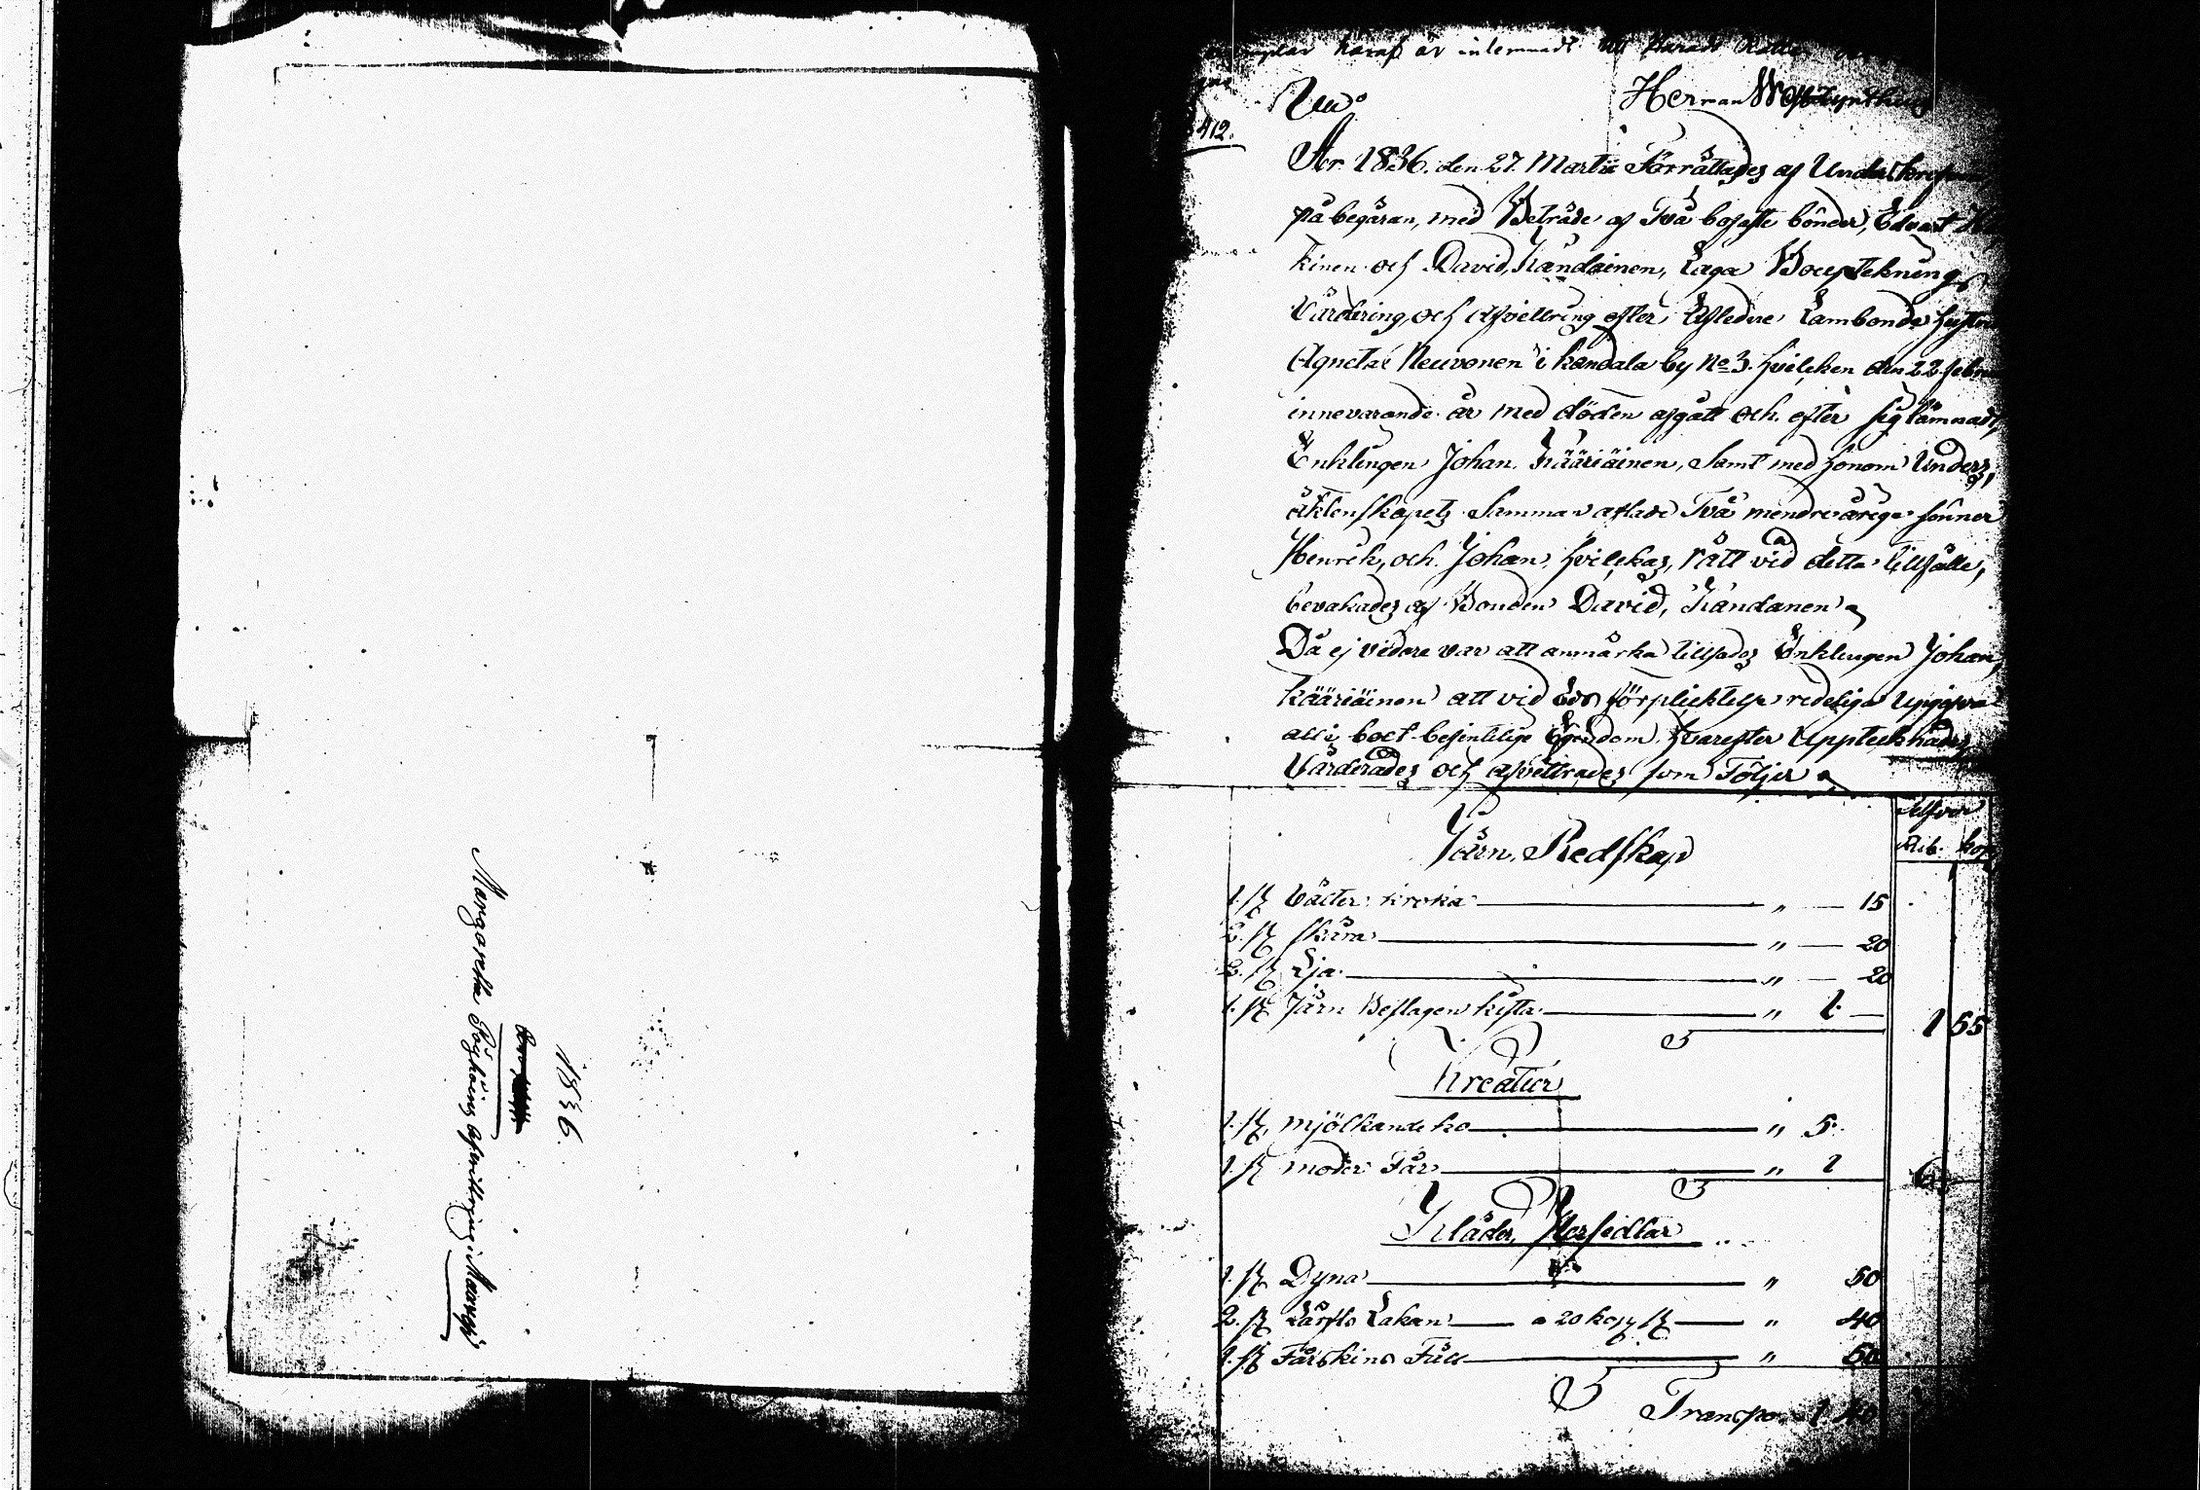 1836.
Margaretha Pöyhöins afwittring:
haraf är inlemnadt till Härads
Herman
412.
År 1836. den 27. Martii Förrättades af Underskrefven
på begäran, med Beträde af Två bofaste bönder, Edvart
kinen och David, Kandainen, Laga Bouptekning,
Värdering, och Afvittring efter Afledne Lambonde hustru
Agneta Neuvonen i kandala by No 3. hvilcken den 22 febru
innevarande år med döden afgått och efter sig lämnadt,
Enklingen Johan Kääriäinen, Samt med honom Under,
äktenskapets Samma aflade Två mendreårige sönner
Henrik, och Johan, hvilckas, rätt vid detta tillfälle,
bevakades af Bonden David, Kandanen
Då ej videre var att anmärka tillsades Enklingen Johan,
Kääriäinen att vid Eds förplicktelse redelige Upgifva
all i boet befintelige Egendom hvarefter Upptecknades
Värderades och afvittrades som Följer
Silfver
Rub. kop
Järn, Redskap
1. st Välter kroka " 15
2. st skära " 20
2. st Lja " 20
1. st Järn Beslagen kista " 1. —
1 55
Kreatur
1. st, mjölkande ko " 5.
1 st moder Får " 1
6
Kläder, Persedlar
1. st Dyna " 50
2. st Lärfts Lakan a 20 kop st " 40
1. st Fårskins Fäll " 50
Transpo. 1 40